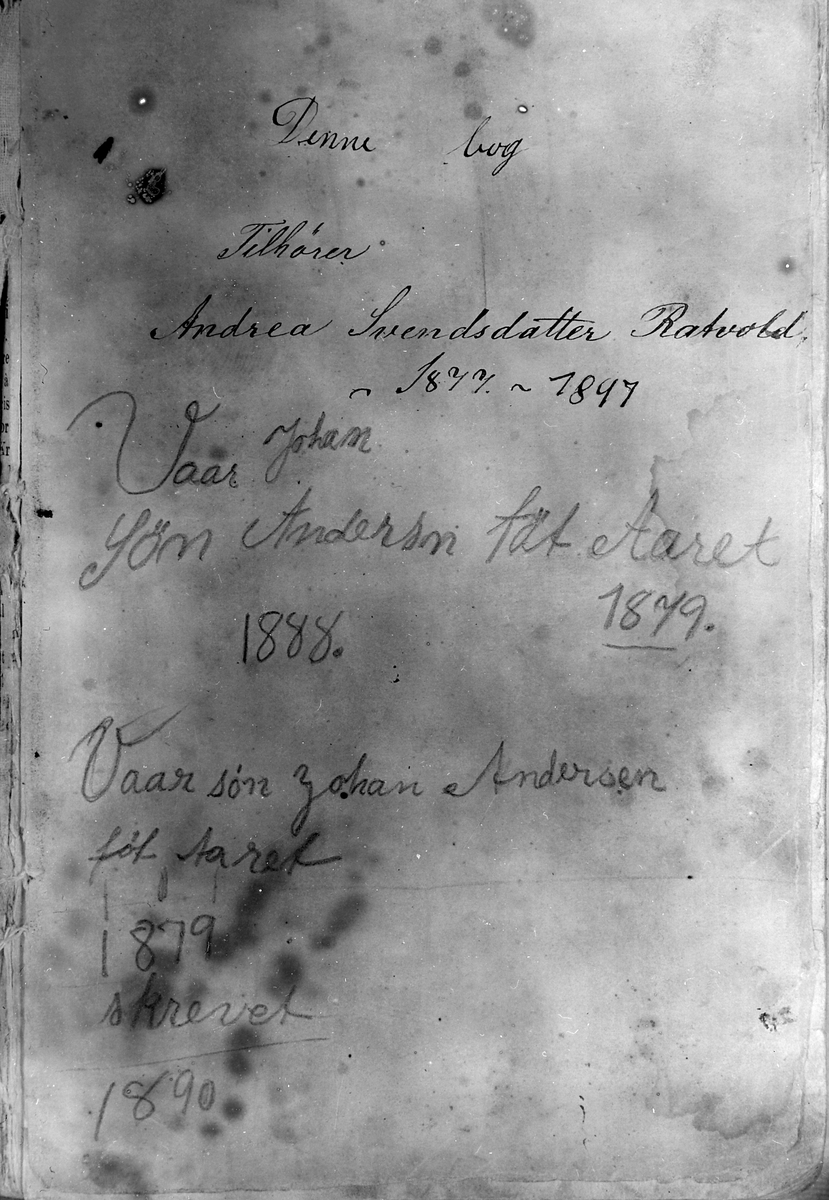 Denne bog
Tilhörer
Andrea Svendsdatter Ratvold.
~ 1877. ~ 1897
Vaar Johan
Sön Andersn föt Aaret
1879.
1888.
Vaar søn Johan Andersen
føt Aaret
1879
skrevet
1890